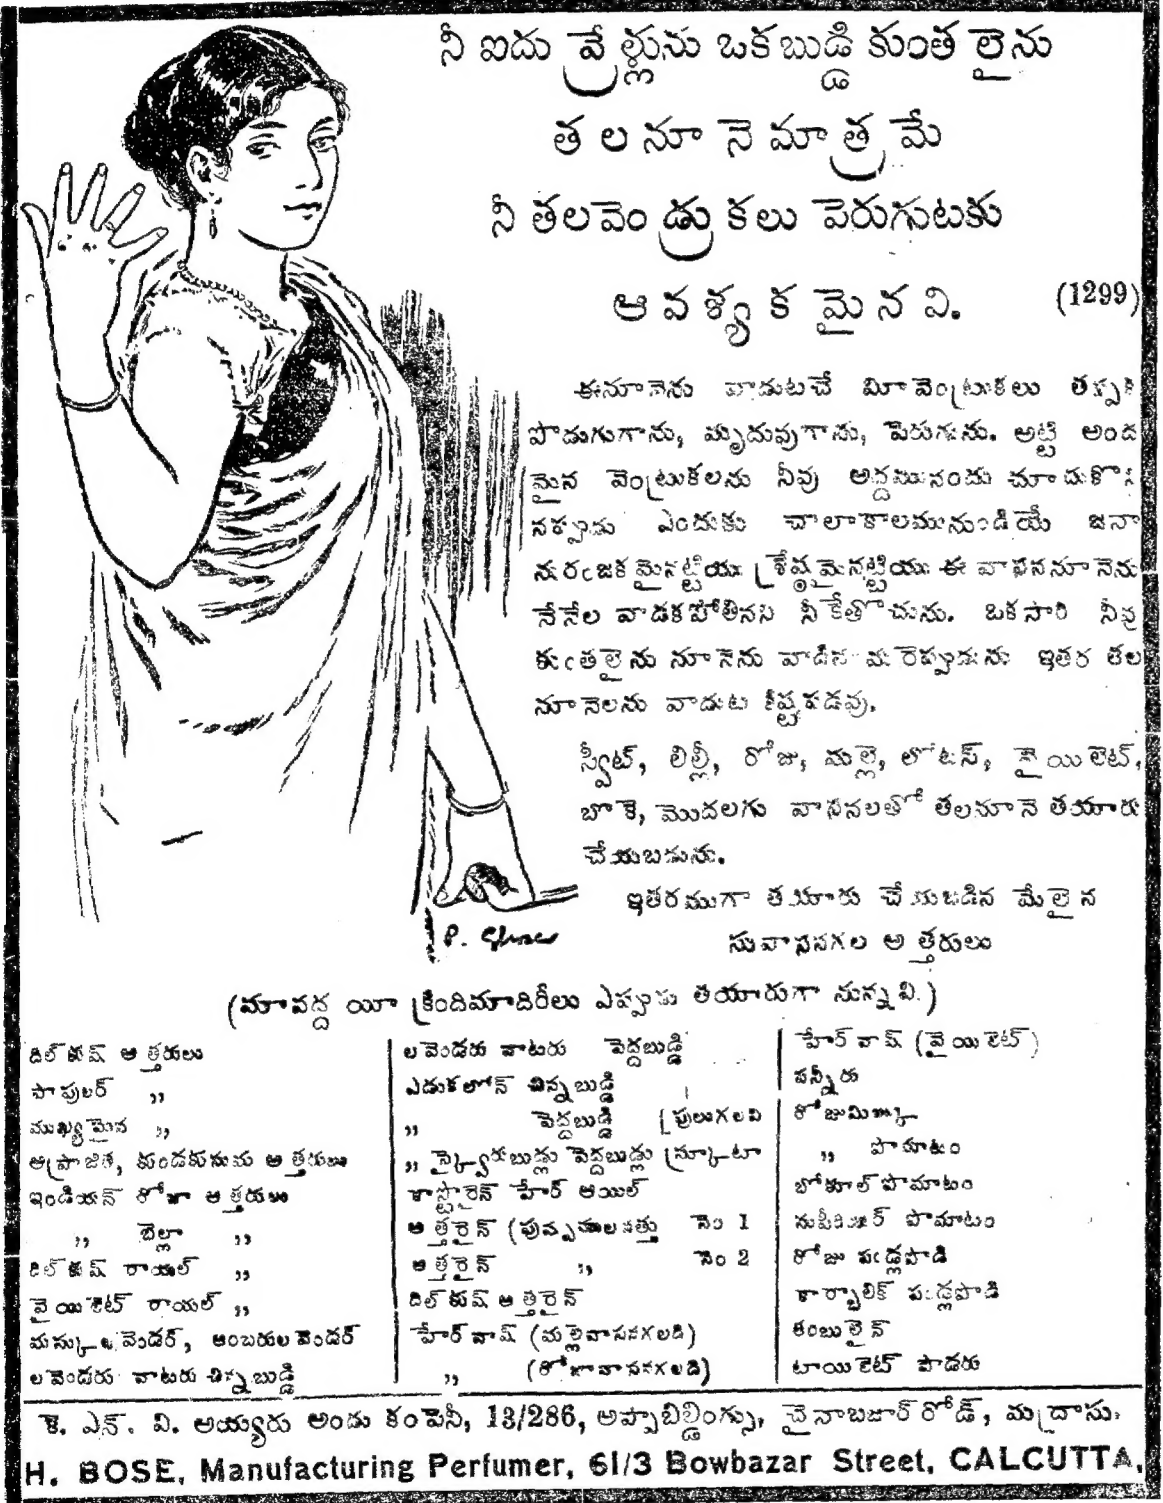 నీ ఐదు వ్రేళ్లును ఒకబుడ్డి కుంతలైను
తలనూనెమాత్రమే
నీ తలవెండ్రుకలు పెరుగుటకు
ఆవశ్యకమైనవి. (1299)
ఈనూనెను వాడుటచే మీవెంట్రుకలు తప్పక
పొడుగుగాను, మృదువుగాను, పెరుగును. అట్టి అంద
మైన వెంట్రుకలను నీవు అద్దమునందు చూచుకొని
నప్పుడు ఎందుకు చాలాకాలమునుండియే జనా
నురంజకమైనట్టియు శ్రేష్ఠమైనట్టియు ఈ వాసననూనెను
నేనేల వాడకపోతినని నీకేతోచును. ఒకసారి నీవు
కుంతలైను నూనెను వాడిన మరెప్పుడును ఇతర తల
నూనెలను వాడుట కిష్టపడవు.
స్వీట్, లిల్లీ, రోజు, మల్లె, లోటస్, వైయిలెట్,
బొకె, మొదలగు వాసనలతో తలనూనె తయారు
చేయబడును.
ఇతరముగా తయారు చేయబడిన మేలైన
సువాసనగల అత్తరులు
(మావద్ద యీ క్రిందిమాదిరీలు ఎప్పుడు తయారుగా నున్నవి.)
దిల్‌కుష్ అత్తరులు
పాపులర్ ,,
ముఖ్యమైన ,,
అప్రాజిత, కుండకుసుమ అత్తరులు
ఇండియన్ రోజా అత్తరులు
,, బెల్లా ,,
దిల్‌కుష్ రాయల్ ,,
వైయిలెట్ రాయల్ ,,
మస్కులవెండర్, అంబరులవెండర్
లవెండరు వాటరు చిన్నబుడ్డి
లవెండరు వాటరు పెద్దబుడ్డి
ఎడుకలోన్ చిన్నబుడ్డి
,, పెద్దబుడ్డి
,, స్క్వైరుబుడ్లు పెద్దబుడ్లు
కాస్టారైన్ హేర్ ఆయిల్
అత్తరైన్ నెం 1
అత్తరైన్ ,, నెం 2
దిల్‌కుష్ అత్తరైన్
హేర్‌వాష్ (మల్లెవాసనగలది)
,, (రోజావాసనగలది)
హేర్ వాష్ (వైయిలెట్)
పన్నీరు
రోజుమిల్కు
,, పొమాటం
బోకూల్ పొమాటం
సుపీరియర్ పొమాటం
రోజు పండ్లపొడి
కార్బాలిక్ పండ్లపొడి
తంబులైన్
టాయిలెట్ పౌడరు
కె. ఎన్. వి. అయ్యరు అండు కంపెనీ, 13/286, అప్పాబిల్డింగ్సు, చైనాబజార్‌రోడ్, మద్రాసు.
H. BOSE, Manufacturing Perfumer, 61/3 Bowbazar Street, CALCUTTA.